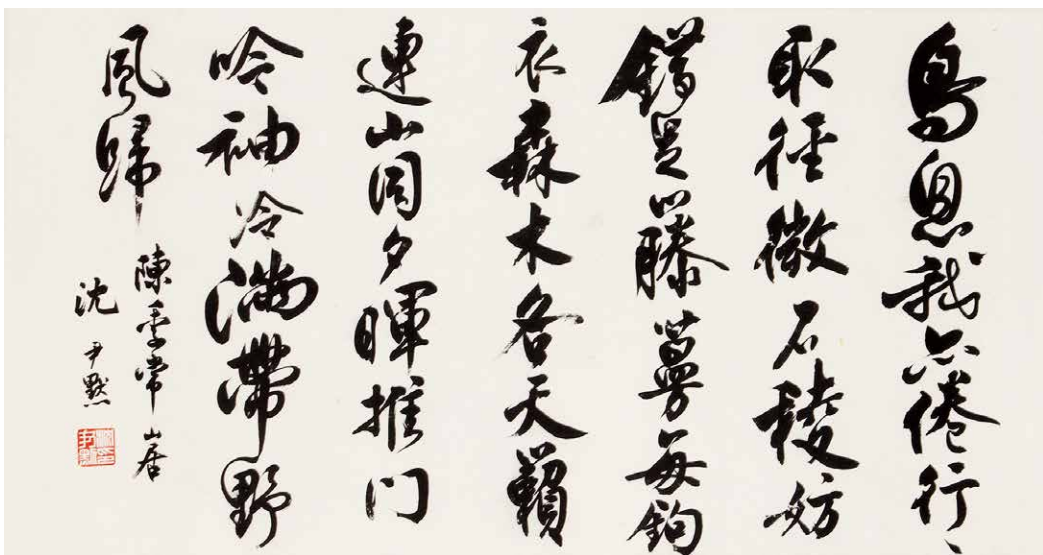 鳥息我亦倦行〻
取徑微石稜妨
錯足藤蔓每鉤
衣森木各天籟
連山同夕暉推門
吟袖冷滿帶野
風歸
陳季常山居
沈尹默